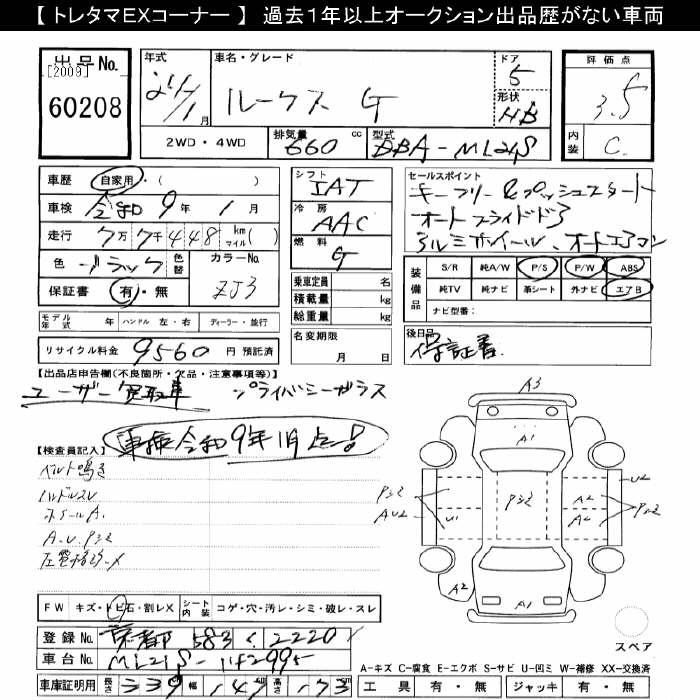 【 トレタマEXコーナー 】 過去1年以上オークション出品歴がない車両
出品No.
[2009]
60208
年式 21/1月
車名・グレード
ルークス G
ドア 5
形状 HB
評価点
3.5
内装 C
2WD・4WD
排気量 660 cc
型式 DBA-ML21S
車歴 自家用・( )
車検 令和 9年 1月
走行 7万7千448 km マイル( )
色 ブラック 色替
カラーNo. ZJ3
保証書 有・無
シフト IAT
冷房 AAC
燃料 G
乗車定員 名
積載量 kg
総重量 kg
名変期限 月 日
セールスポイント
キーフリー&プッシュスタート
オートスライドドア
アルミホイール、オートエアコン
装備品
S/R 純A/W P/S P/W ABS
純TV 純ナビ 革シート 外ナビ エアB
ナビ型番:
モデル年式 年 ハンドル 左・右 ディーラー・並行
リサイクル料金 9560 円 預託済
後日品
保証書
【出品店申告欄(不良箇所・欠品・注意事項等)】
ユーザー買取車 プライバシーガラス
車検令和9年1月 点!
【検査員記入】
ベルト鳴き
ハンドルスレ
ホイールA.
A.U.Pシミ
A3
A1
Pシミ
AU2
U1
Pシミ
A2
A2
U2
A2
A1
スペア
FW キズ・トビ石・割レX シート内装 コゲ・穴・汚レ・シミ・破レ・スレ
登録No. 京都 583 く 2220
車台No. ML21S-
車庫証明用 長さ 339 幅 147 高さ 173
A-キズ C-腐食 E-エクボ S-サビ U-凹ミ W-補修 XX-交換済
工具 有・無 ジャッキ 有・無